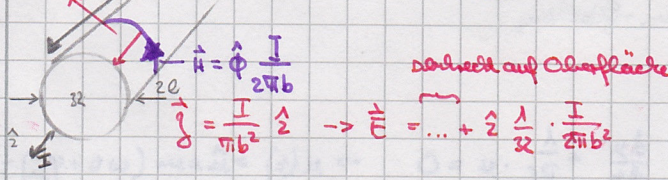 H⃗ = φ̂ I/2πb
senkrecht auf Oberfläche
32 2b
J⃗ = I/πb² ẑ → E⃗ = ... + ẑ λ/32 · I/2πb²
ẑ
I